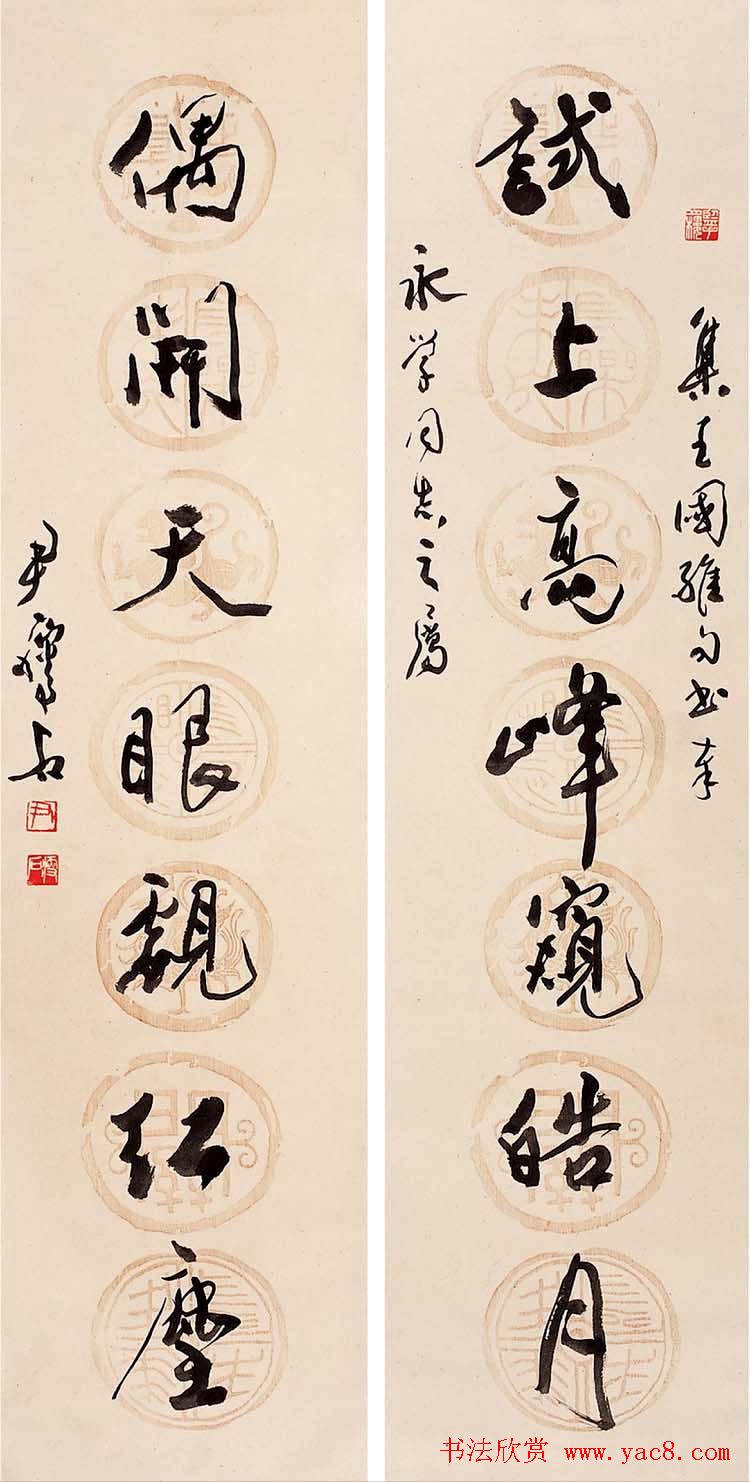 集王國維句书奉
試上高峰窺皓月
永学同志之属
偶開天眼覷红塵
尹瘦石
尹
瘦石
书法欣赏 www.yac8.com